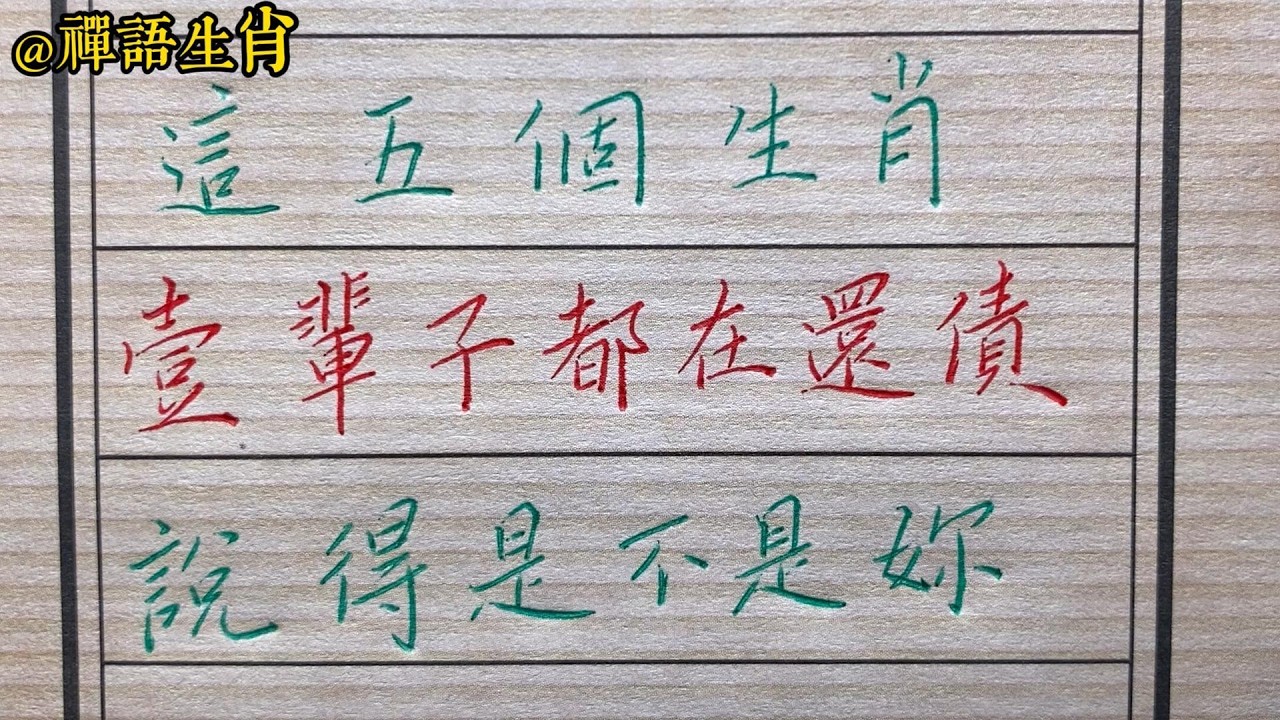 @禪語生肖
這五個生肖
壹輩子都在還債
說得是不是妳